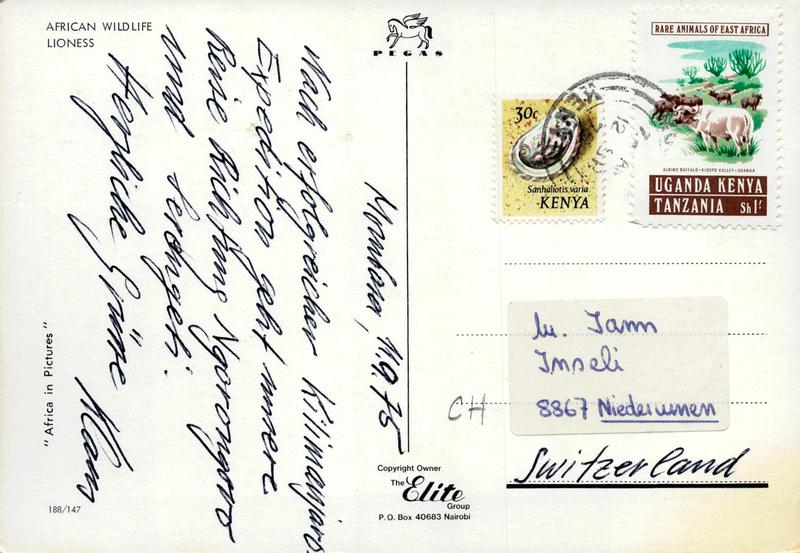 AFRICAN WILDLIFE
LIONESS
PEGAS
Mombasa, 11.9.75
Nach erfolgreicher Kilimanjaro
Expedition geht unsere
Reise Richtung Ngorongoro
und Serengeti.
Herzliche Grüsse Klaus
"Africa in Pictures"
188/147
Copyright Owner
The Elite
Group
P. O. Box 40683 Nairobi
30c
Sanhaliotis varia
KENYA
RARE ANIMALS OF EAST AFRICA
ALBINO BUFFALO-KIDEPO VALLEY-UGANDA
UGANDA KENYA
TANZANIA Sh 1/-
Jann
Inseli
8867 Niederurnen
CH
Switzerland